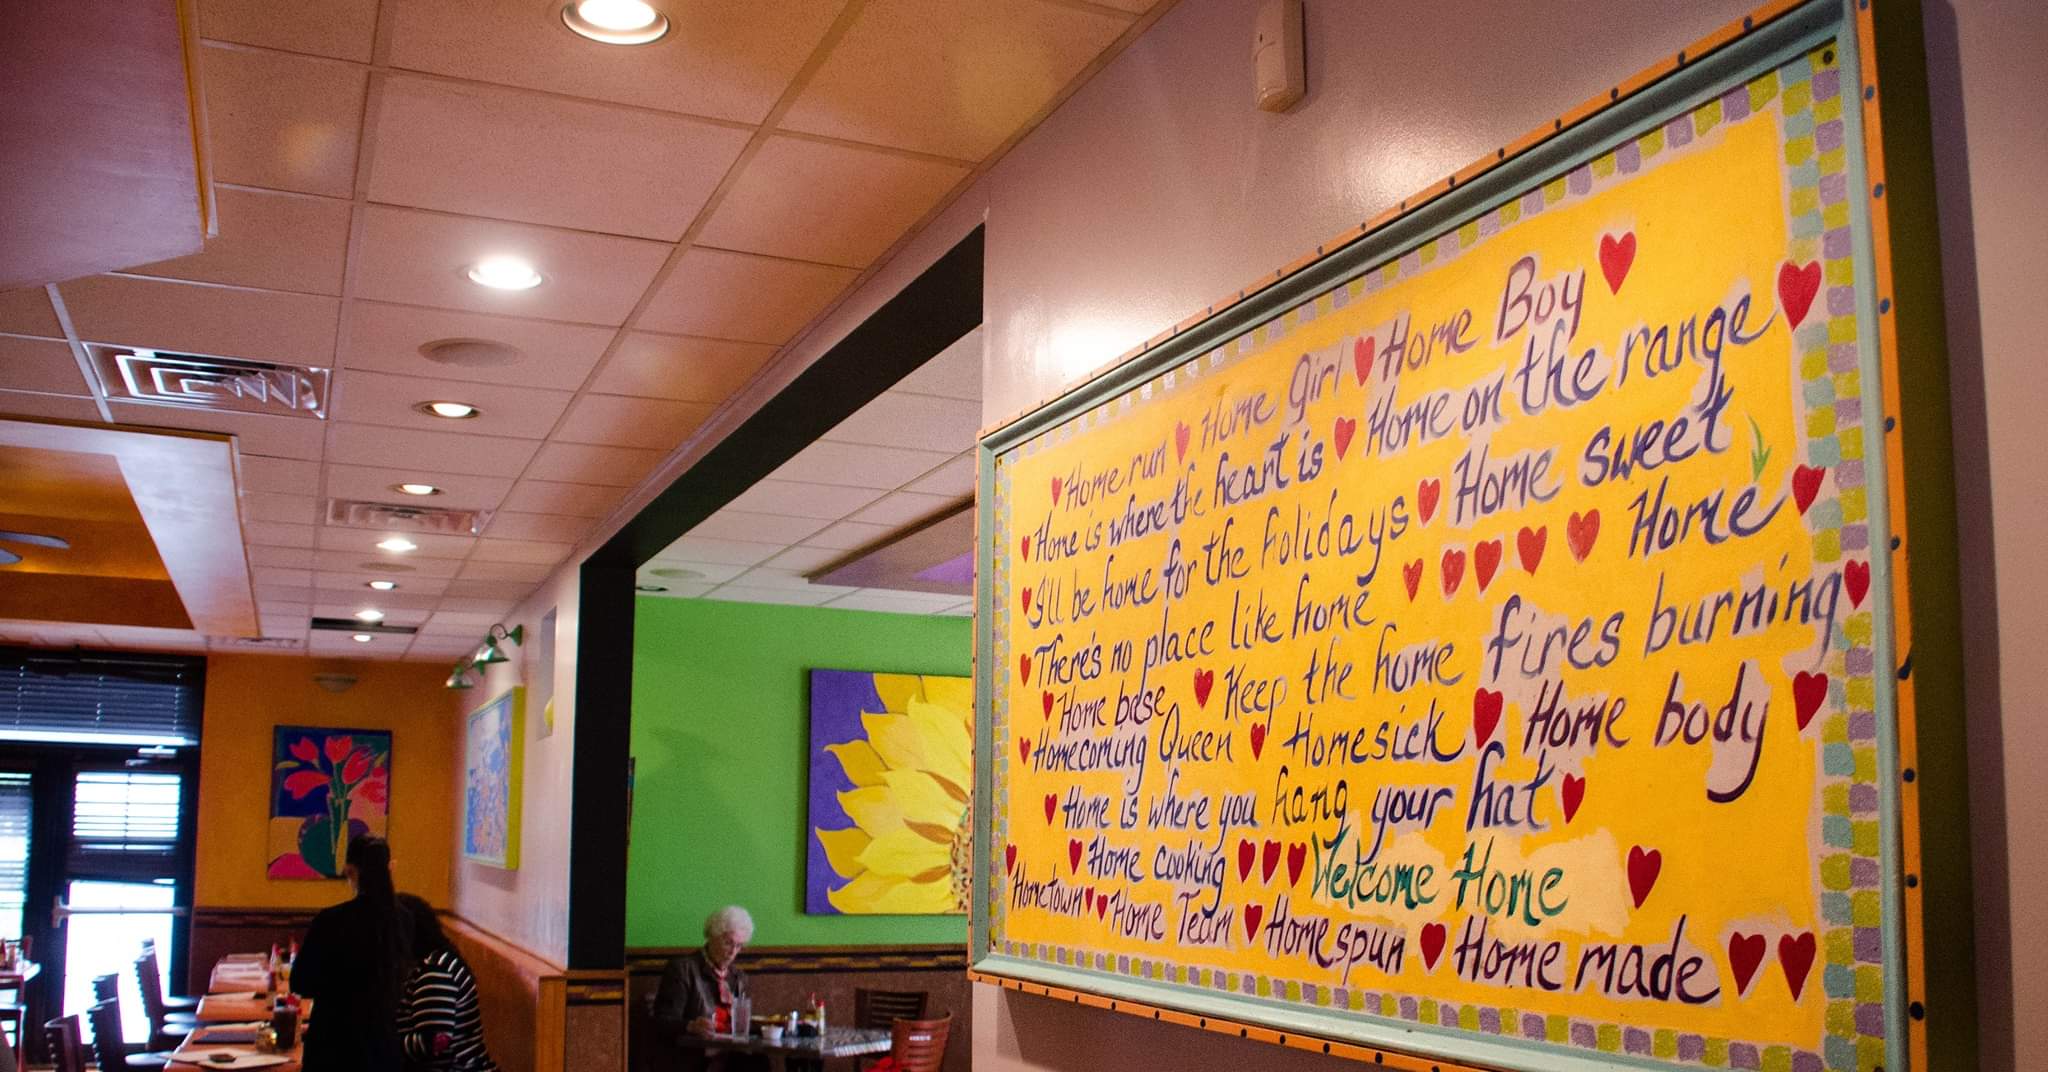 Home run Home Girl Home Boy
Home is where the heart is Home on the range
I'll be home for the holidays Home sweet
There's no place like home Home
Home base Keep the home fires burning
Homecoming Queen Homesick Home body
Home is where you hang your hat
Home cooking Welcome Home
Hometown Home Team Homespun Home made